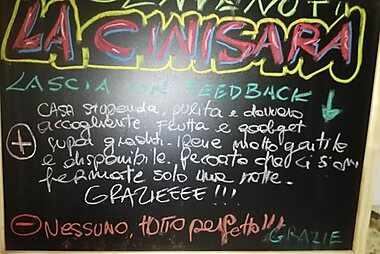 BENVENUTI
LA CINISARA
LASCIA UN FEEDBACK
CASA STUPENDA, PULITA E DAVVERO
ACCOGLIENTE. FRUTTA E GADGET
+ SUPER GRADITI. IRENE MOLTO GENTILE
E DISPONIBILE. PECCATO CHE CI SIAMO
FERMATE SOLO UNA NOTTE.
GRAZIEEEE!!!
- NESSUNO, TUTTO PERFETTO!!!
GRAZIE